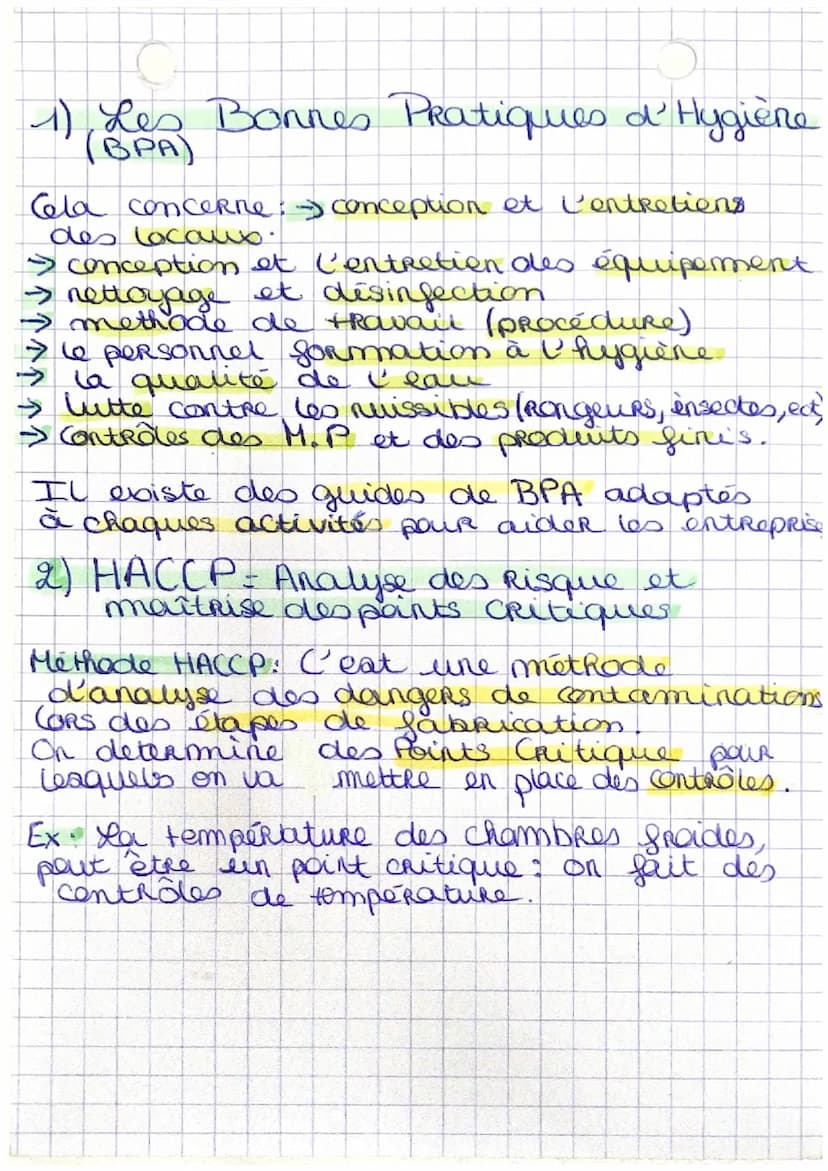 1) Les Bonnes Pratiques d'Hygiène
(BPA)
Cela concerne : → conception et l'entretiens
des locaux.
→ conception et l'entretien des équipement
→ nettoyage et désinfection
→ methode de travail (procédure)
→ le personnel formation à l'hygiène
→ la qualité de l'eau
→ lutte contre les nuissibles (rongeurs, insectes, ect)
→ Contrôles des M.P et des produits finis.
Il existe des guides de BPA adaptés
à chaques activités pour aider les entreprise
2) HACCP = Analyse des Risque et
maîtrise des points critiques
Méthode HACCP : C'est une méthode
d'analyse des dangers de contaminations
lors des étapes de fabrication.
On determine des Points Critique pour
lesquels on va mettre en place des contrôles.
Ex : La température des chambres froides,
peut être un point critique : on fait des
contrôles de température.